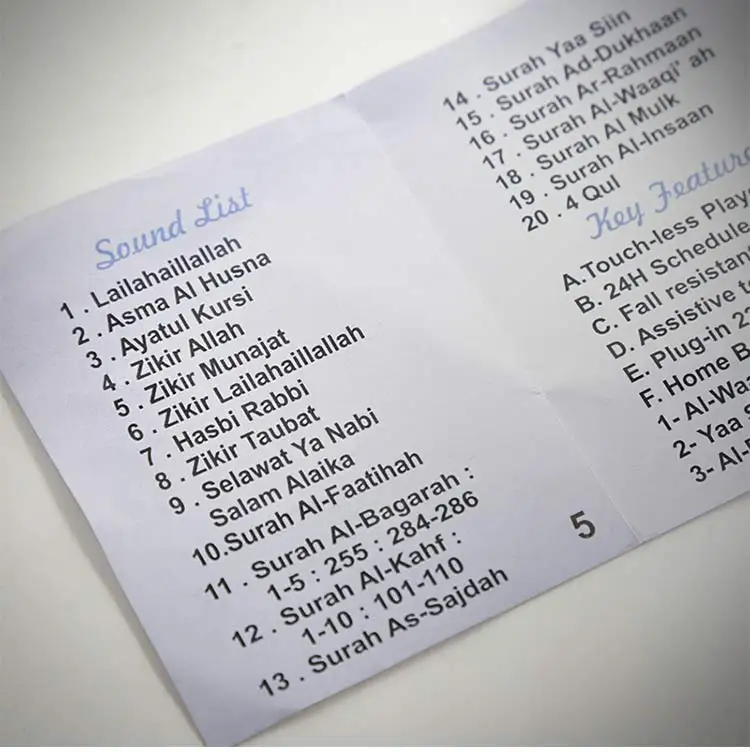 Sound List
1 . Lailahaillallah
2 . Asma Al Husna
3 . Ayatul Kursi
4 . Zikir Allah
5 . Zikir Munajat
6 . Zikir Lailahaillallah
7 . Hasbi Rabbi
8 . Zikir Taubat
9 . Selawat Ya Nabi
Salam Alaika
10.Surah Al-Faatihah
11 . Surah Al-Bagarah :
1-5 : 255 : 284-286
12 . Surah Al-Kahf :
1-10 : 101-110
13 . Surah As-Sajdah
5
14 . Surah Yaa Siin
15 . Surah Ad-Dukhaan
16 . Surah Ar-Rahmaan
17 . Surah Al-Waaqi' ah
18 . Surah Al Mulk
19 . Surah Al-Insaan
20 . 4 Qul
Key
A.Touch-less
B. 24H
C. Fall
D. Assistive
E. Plug-in
F. Home
1-
2- Yaa
3-